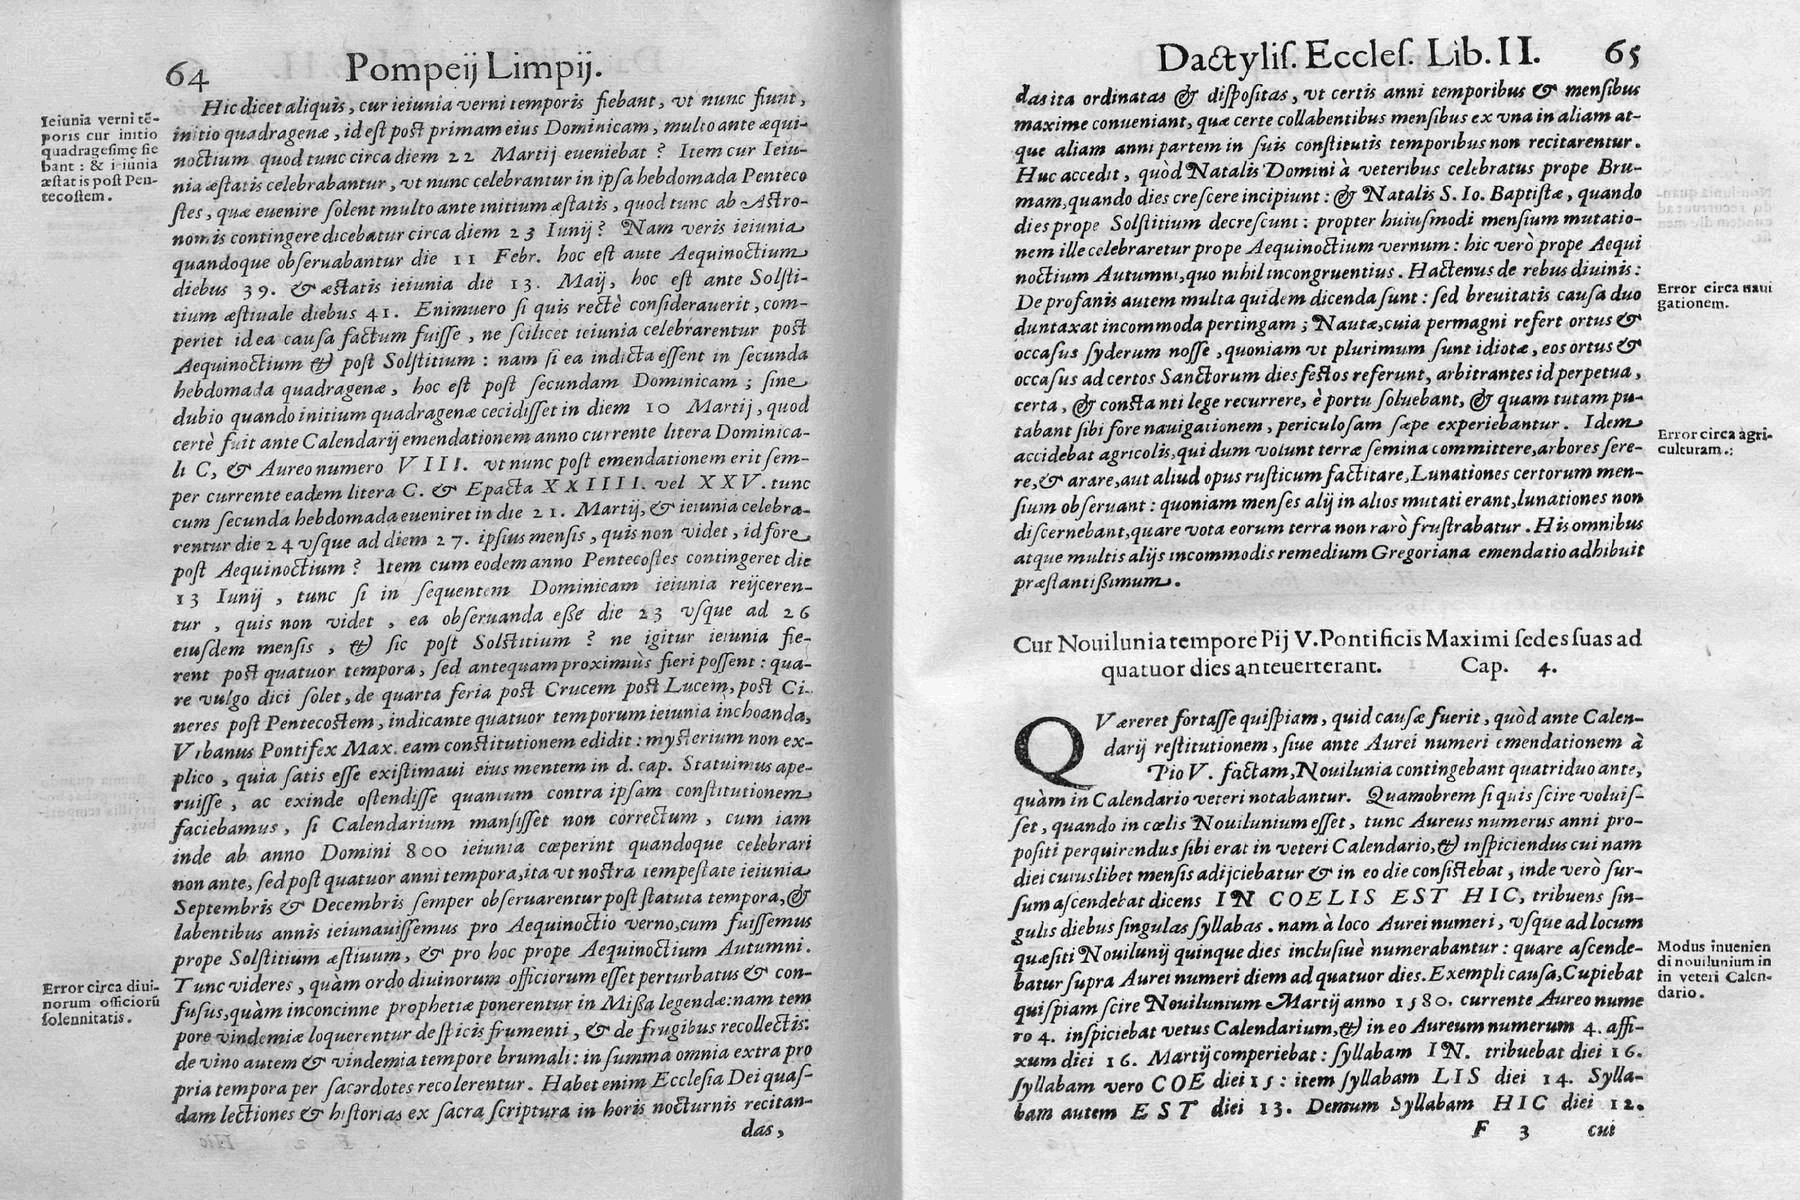 64
Pompeij Limpij.
Ieiunia verni tē-
poris cur initio
quadragesimę fie
bant: & ieiunia
æstatis post Pen-
tecostem.
Hic dicet aliquis, cur ieiunia verni temporis fiebant, vt nunc fiunt,
initio quadragenæ, id est post primam eius Dominicam, multo ante æqui-
noctium quod tunc circa diem 22 Martij eueniebat? Item cur Ieiu-
nia æstatis celebrabantur, vt nunc celebrantur in ipsa hebdomada Penteco
stes, quæ euenire solent multo ante initium æstatis, quod tunc ab Astro-
nomis contingere dicebatur circa diem 23 Iunij? Nam veris ieiunia
quandoque obseruabantur die 11 Febr. hoc est ante Aequinoctium
diebus 39. & æstatis ieiunia die 13. Maij, hoc est ante Solsti-
tium æstiuale diebus 41. Enimuero si quis rectè considerauerit, com-
periet id ea causa factum fuisse, ne scilicet ieiunia celebrarentur post
Aequinoctium & post Solstitium: nam si ea indicta essent in secunda
hebdomada quadragenæ, hoc est post secundam Dominicam; sine
dubio quando initium quadragenæ cecidisset in diem 10 Martij, quod
certè fuit ante Calendarij emendationem anno currente litera Dominica-
li C, & Aureo numero VIII. vt nunc post emendationem erit sem-
per currente eadem litera C. & Epacta XXIIII. vel XXV. tunc
cum secunda hebdomada eueniret in die 21. Martij, & ieiunia celebra-
rentur die 24 vsque ad diem 27. ipsius mensis, quis non videt, id fore
post Aequinoctium? Item cum eodem anno Pentecostes contingeret die
13 Iunij, tunc si in sequentem Dominicam ieiunia reijceren-
tur, quis non videt, ea obseruanda eße die 23 vsque ad 26
eiusdem mensis, & sic post Solstitium? ne igitur ieiunia fie-
rent post quatuor tempora, sed antequam proximiùs fieri possent: qua-
re vulgo dici solet, de quarta feria post Crucem post Lucem, post Ci-
neres post Pentecostem, indicante quatuor temporum ieiunia inchoanda,
Vrbanus Pontifex Max. eam constitutionem edidit: mysterium non ex-
plico, quia satis esse existimaui eius mentem in d. cap. Statuimus ape-
ruisse, ac exinde ostendisse quantum contra ipsam constitutionem
faciebamus, si Calendarium mansisset non correctum, cum iam
inde ab anno Domini 800 ieiunia cœperint quandoque celebrari
non ante, sed post quatuor anni tempora, ita vt nostra tempestate ieiunia
Septembris & Decembris semper obseruarentur post statuta tempora, &
labentibus annis ieiunauissemus pro Aequinoctio verno, cum fuissemus
prope Solstitium æstiuum, & pro hoc prope Aequinoctium Autumni.
Tunc videres, quàm ordo diuinorum officiorum esset perturbatus & con-
fusus, quàm inconcinne prophetiæ ponerentur in Mißa legendæ: nam tem
pore vindemiæ loquerentur de spicis frumenti, & de frugibus recollectis:
de vino autem & vindemia tempore brumali: in summa omnia extra pro
pria tempora per sacerdotes recolerentur. Habet enim Ecclesia Dei quas-
dam lectiones & historias ex sacra scriptura in horis nocturnis recitan-
das,
Error circa diui-
norum officiorū
solennitatis.
Dactylis. Eccles. Lib. II.
65
das ita ordinatas & dispositas, vt certis anni temporibus & mensibus
maxime conueniant, quæ certe collabentibus mensibus ex vna in aliam at-
que aliam anni partem in suis constitutis temporibus non recitarentur.
Huc accedit, quòd Natalis Domini à veteribus celebratus prope Bru-
mam, quando dies crescere incipiunt: & Natalis S. Io. Baptistæ, quando
dies prope Solstitium decrescunt: propter huiusmodi mensium mutatio-
nem ille celebraretur prope Aequinoctium vernum: hic verò prope Aequi
noctium Autumni, quo nihil incongruentius. Hactenus de rebus diuinis:
De profanis autem multa quidem dicenda sunt: sed breuitatis causa duo
duntaxat incommoda pertingam; Nautæ, cuia permagni refert ortus &
occasus syderum nosse, quoniam vt plurimum sunt idiotæ, eos ortus &
occasus ad certos Sanctorum dies festos referunt, arbitrantes id perpetua,
certa, & constanti lege recurrere, è portu soluebant, & quam tutam pu-
tabant sibi fore nauigationem, periculosam sæpe experiebantur. Idem
accidebat agricolis, qui dum volunt terræ semina committere, arbores sere-
re, & arare, aut aliud opus rusticum factitare, Lunationes certorum men-
sium obseruant: quoniam menses alij in alios mutati erant, lunationes non
discernebant, quare vota eorum terra non rarò frustrabatur. His omnibus
atque multis alijs incommodis remedium Gregoriana emendatio adhibuit
præstantißimum.
Error circa naui
gationem.
Error circa agri-
culturam.:
Cur Nouilunia tempore Pij V. Pontificis Maximi sedes suas ad
quatuor dies anteuerterant. Cap. 4.
QVæreret fortasse quispiam, quid causæ fuerit, quòd ante Calen-
darij restitutionem, siue ante Aurei numeri emendationem à
Pio V. factam, Nouilunia contingebant quatriduo ante,
quàm in Calendario veteri notabantur. Quamobrem si quis scire voluis-
set, quando in cœlis Nouilunium esset, tunc Aureus numerus anni pro-
positi perquirendus sibi erat in veteri Calendario, & inspiciendus cui nam
diei cuiuslibet mensis adijciebatur & in eo die consistebat, inde verò sur-
sum ascendebat dicens IN COELIS EST HIC, tribuens sin-
gulis diebus singulas syllabas. nam à loco Aurei numeri, vsque ad locum
quæsiti Nouilunij quinque dies inclusiuè numerabantur: quare ascende-
batur supra Aurei numeri diem ad quatuor dies. Exempli causa, Cupiebat
quispiam scire Nouilunium Martij anno 1580. currente Aureo nume
ro 4. inspiciebat vetus Calendarium, & in eo Aureum numerum 4. affi-
xum diei 16. Martij comperiebat: syllabam IN. tribuebat diei 16.
syllabam vero COE diei 15: item syllabam LIS diei 14. Sylla-
bam autem EST diei 13. Demum Syllabam HIC diei 12.
F 3 cui
Modus inuenien
di nouilunium in
in veteri Calen-
dario.